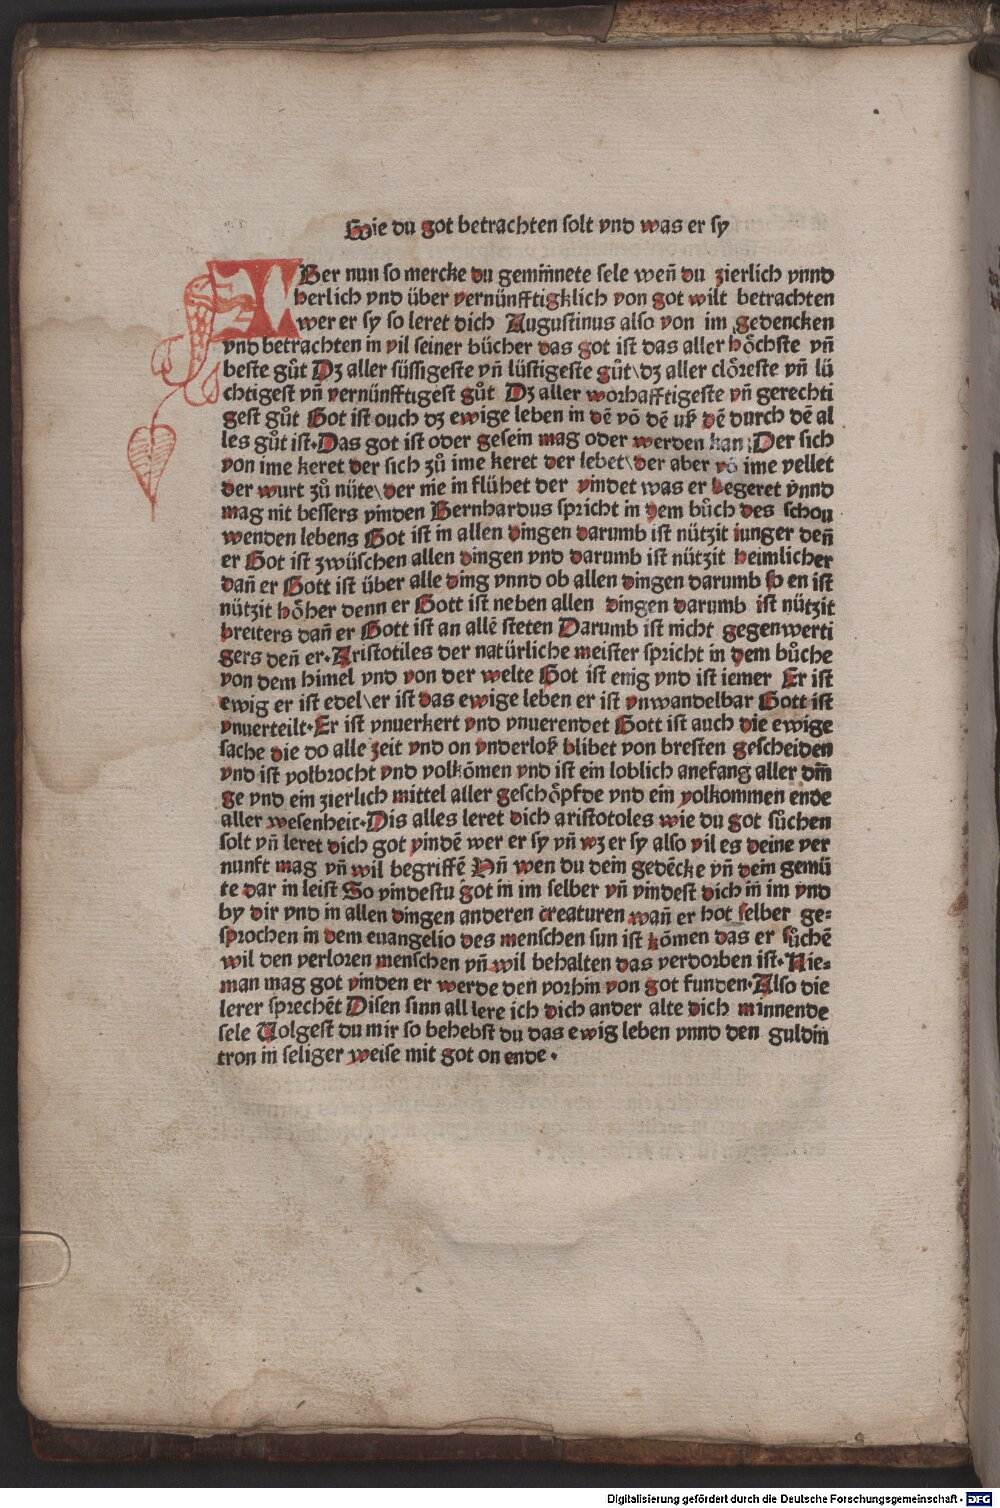 Wie du got betrachten solt vnd was er sy
ABer nun so mercke du gemiñnete sele weñ du zierlich vnnd
herlich vnd über vernünfftigklich von got wilt betrachten
wer er sy so leret dich Augustinus also von im gedencken
vnd betrachten in vil seiner bücher das got ist das aller hỏchste vñ
beste gůt Dz aller süssigeste vñ lüstigeste gůt\ dz aller clỏreste vñ lü
chtigest vñ vernünfftigest gůt Dz aller worhafftigeste vñ gerechti
gest gůt Got ist ouch dz ewige leben in dē võ dē vß dē durch dē al
les gůt ist. Das got ist oder gesein mag oder werden kan Der sich
von ime keret der sich zů ime keret der lebet\ der aber võ ime vellet
der wurt zů nüte\ der nie in flühet der vindet was er begeret vnnd
mag nit bessers vinden Bernhardus spricht in dem bůch des schou
wenden lebens Got ist in allen dingen darumb ist nützit iunger deñ
er Got ist zwüschen allen dingen vnd darumb ist nützit heimlicher
dañ er Gott ist über alle ding vnnd ob allen dingen darumb so en ist
nützit hỏher denn er Gott ist neben allen dingen darumb ist nützit
breiters dañ er Gott ist an allē steten Darumb ist nicht gegenwerti
gers deñ er. Aristotiles der natürliche meister spricht in dem bůche
von dem himel vnd von der welte Got ist enig vnd ist iemer Er ist
ewig er ist edel\ er ist das ewige leben er ist vnwandelbar Gott ist
vnuerteilt. Er ist vnuerkert vnd vnuerendet Gott ist auch die ewige
sache die do alle zeit vnd on vnderloß blibet von bresten gescheiden
vnd ist volbrocht vnd volkõmen vnd ist ein loblich anefang aller diñ
ge vnd ein zierlich mittel aller geschỏpfde vnd ein volkommen ende
aller wesenheit. Dis alles leret dich aristotoles wie du got sůchen
solt vñ leret dich got vindē wer er sy vñ wz er sy also vil es deine ver
nunft mag vñ wil begriffē Vñ wen du dein gedēcke vñ dein gemü
te dar in leist So vindestu got in im selber vñ vindest dich iñ im vnd
by dir vnd in allen dingen anderen creaturen wañ er hot selber ge=
sprochen in dem euangelio des menschen sun ist kõmen das er sůchē
wil den verloren menschen vñ wil behalten das verdorben ist. Nie=
man mag got vinden er werde den vorhin von got funden. Also die
lerer sprechēt Disen sinn all lere ich dich ander alte dich minnende
sele Volgest du mir so behebst du das ewig leben vnnd den guldiñ
tron in seliger weise mit got on ende.
Digitalisierung gefördert durch die Deutsche Forschungsgemeinschaft - DFG